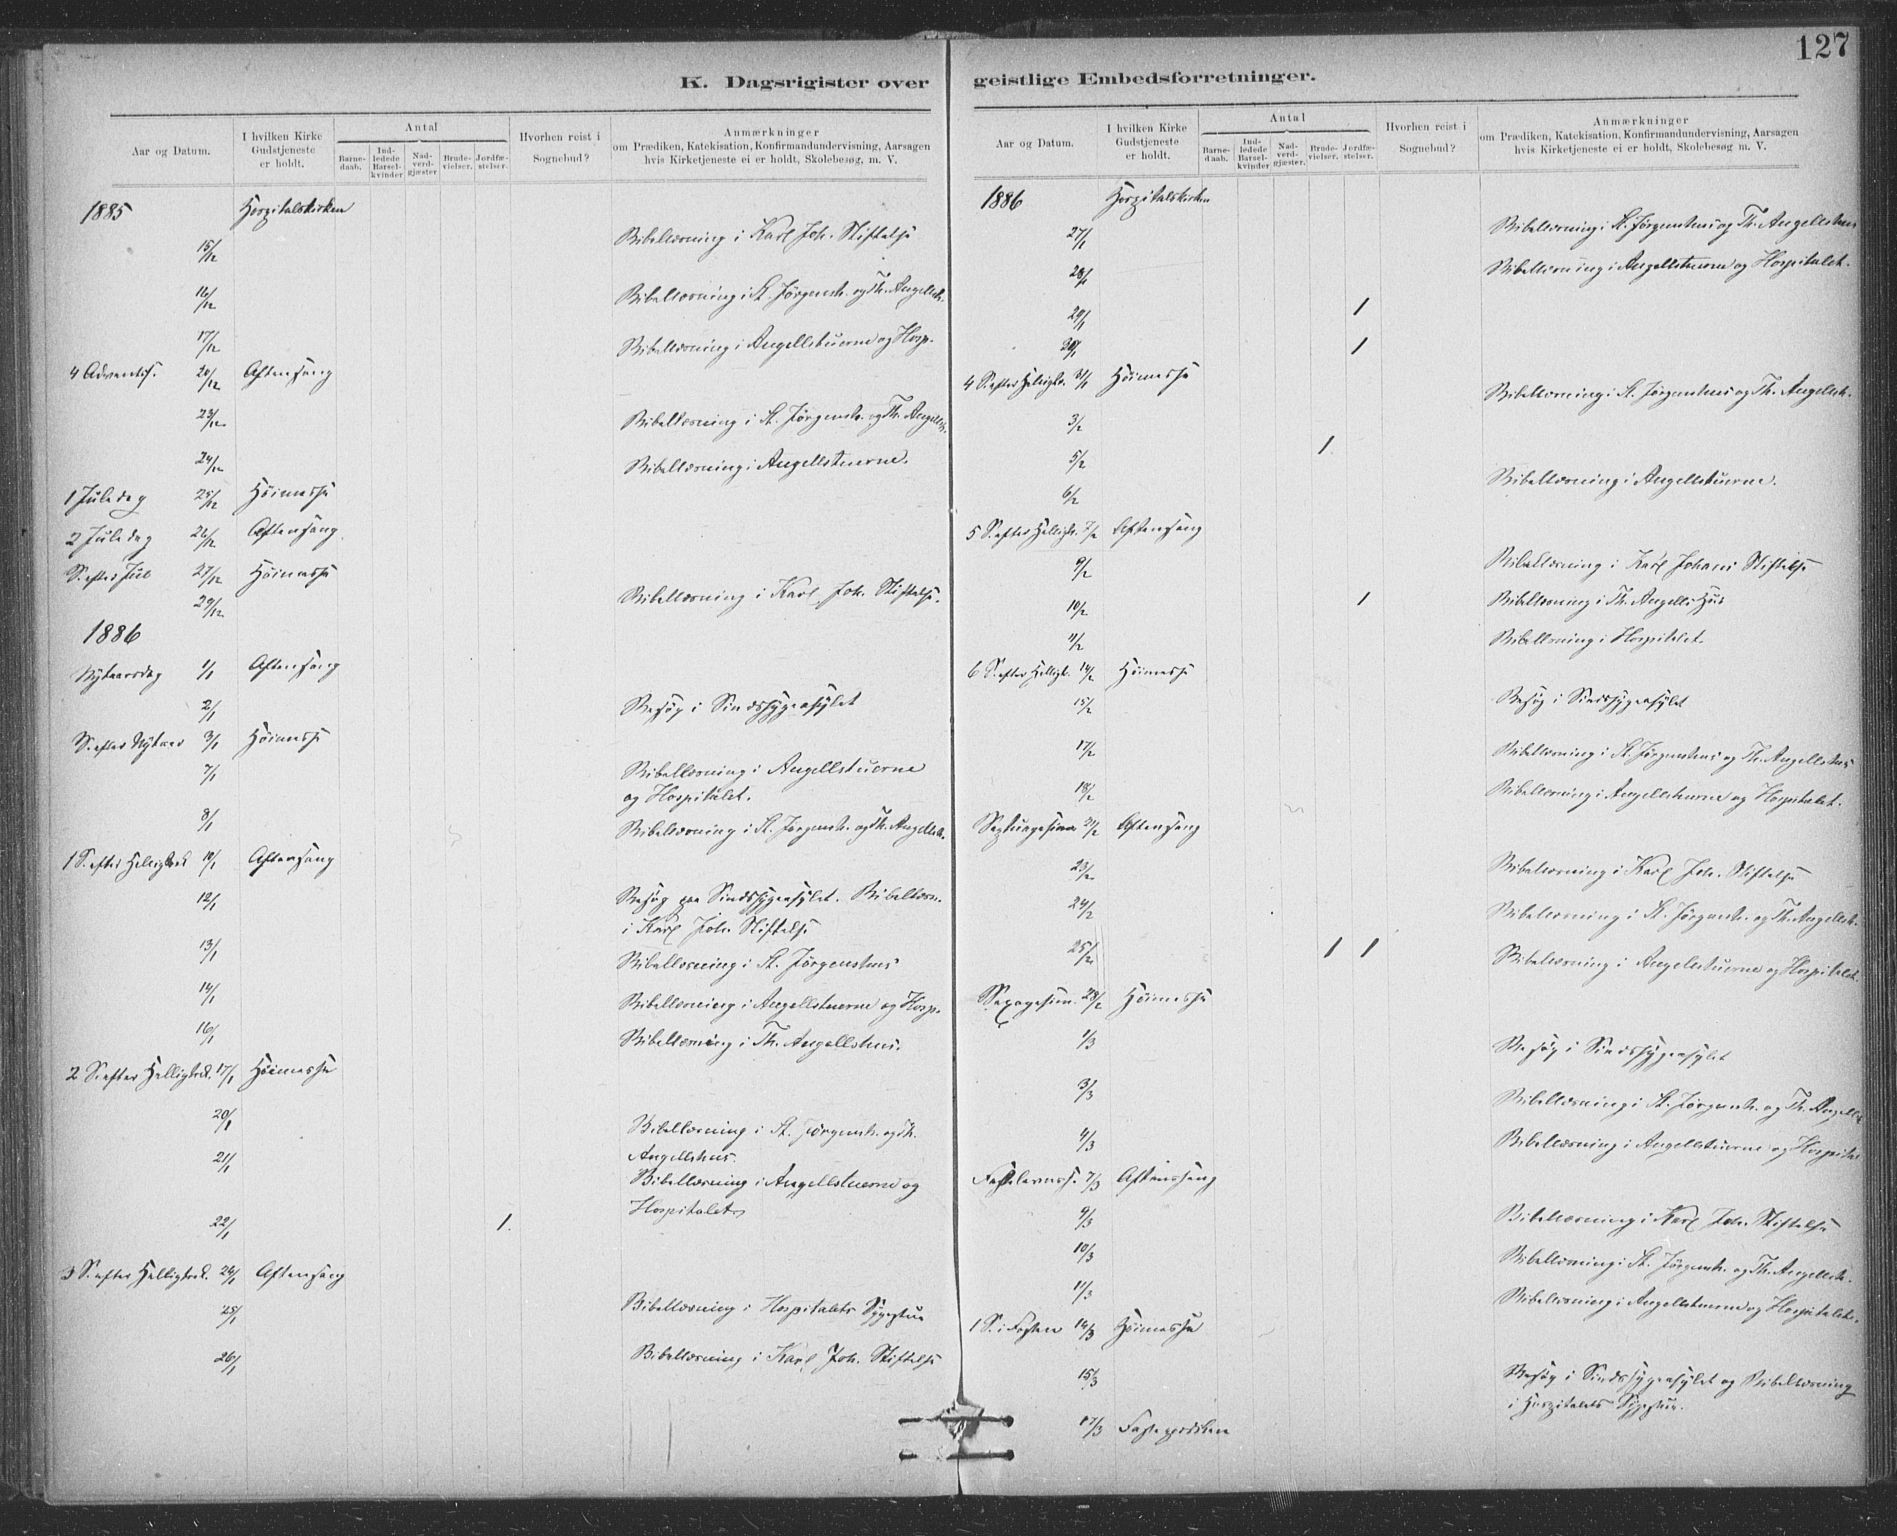 127
K. Dagsrigister over geistlige Embedsforretninger.
Aar og Datum.
I hvilken Kirke Gudstjeneste er holdt.
Antal
Barnedaab.
Indledede Barselkvinder
Nadverdgjæster
Brudevielser.
Jordfæstelser.
Hvorhen reist i Sognebud?
Anmærkninger
om Prædiken, Katekisation, Konfirmandundervisning, Aarsagen hvis Kirketjeneste ei er holdt, Skolebesøg, m. V.
1885 Hospitalskirken
15/12 Bibellæsning i Karl Joh. Stiftelse
16/12 Bibellæsning i St. Jørgensh. og Th. Angellsh.
17/12 Bibellæsning i Angellstuerne og Hosp.
4 Adventss. 20/12 Aftensang
23/12 Bibellæsning i St. Jørgensh. og Th. Angellsh.
24/12 Bibellæsning i Angellstuerne.
1 Juledag 25/12 Høimesse
2 Juledag 26/12 Aftensang
S. efter Jul 27/12 Høimesse
29/12 Bibellæsning i Karl Joh. Stiftelse.
1886
Nytaarsdag 1/1 Aftensang
2/1 Besøg i Sindssygeasylet
S. efter Nytaar 3/1 Høimesse
7/1 Bibellæsning i Angellstuerne
og Hospitalet.
8/1 Bibellæsning i St. Jørgensh. og Th. Angellsh.
1 S. efter Helligtrek 10/1 Aftensang
12/1 Besøg paa Sindssygeasylet. Bibellæsn.
i Karl Joh. Stiftelse
13/1 Bibellæsning i St. Jørgenshus
14/1 Bibellæsning i Angellstuerne og Hosp.
16/1 Bibellæsning i Th. Angellshus.
2 S. efter Helligtrek. 17/1 Høimesse
20/1 Bibellæsning i St. Jørgensh. og Th.
Angellshus.
21/1 Bibellæsning i Angellstuerne og
Hospitalet
22/1 1.
3 S. efter Helligtrek. 24/1 Aftensang
25/1 Bibellæsning i Hospitalets Sygestue
26/1 Bibellæsning i Karl Joh. Stiftelse
Aar og Datum.
I hvilken Kirke Gudstjeneste er holdt.
Antal
Barnedaab.
Indledede Barselkvinder
Nadverdgjæster.
Brudevielser.
Jordfæstelser.
Hvorhen reist i Sognebud?
Anmærkninger
om Prædiken, Katekisation, Konfirmandundervisning, Aarsagen hvis Kirketjeneste ei er holdt, Skolebesøg, m. V.
1886 Hospitalskirken
27/1 Bibellæsning i St. Jørgenshus og Th. Angellshus
28/1 Bibellæsning i Angellstuerne og Hospitalet.
29/1 1
30/1 1
4 S. efter Helligtr. 31/1 Høimesse
3/2 Bibellæsning i St. Jørgenshus og Th. Angellsh.
5/2 1.
6/2 Bibellæsning i Angellstuerne.
5 S. efter Helligtr. 7/2 Aftensang
9/2 Bibellæsning i Karl Johans Stiftelse
10/2 1 Bibellæsning i Th. Angells Hus
11/2 Bibellæsning i Hospitalet.
6 S. efter Helligtr. 14/2 Høimesse
15/2 Besøg i Sindssygeasylet
17/2 Bibellæsning i St. Jørgenshus og Th. Angellshus
18/2 Bibellæsning i Angellstuerne og Hospitalet.
Septuagesima 21/2 Aftensang
23/2 Bibellæsning i Karl Joh. Stiftelse
24/2 Bibellæsning i St. Jørgensh. og Th. Angellsh.
25/2 1 1 Bibellæsning i Angellstuerne og Hospitalet.
Sexagesim. 28/2 Høimesse
1/3 Besøg i Sindssygeasylet
3/3 Bibellæsning i St. Jørgensh. og Th. Angellsh
4/3 Bibellæsning i Angellstuerne og Hospital
Fastelavnss. 7/3 Aftensang
9/3 Bibellæsning i Karl Joh. Stiftelse
10/3 Bibellæsning i St. Jørgensh. og Th. Angellsh.
11/3 Bibellæsning i Angellstuerne og Hospitalet.
1 S. i Fasten 14/3 Høimesse
15/3 Besøg i Sindssygeasylet og Bibellæsning
i Hospitalets Sygestue.
17/3 Fasteprædiken